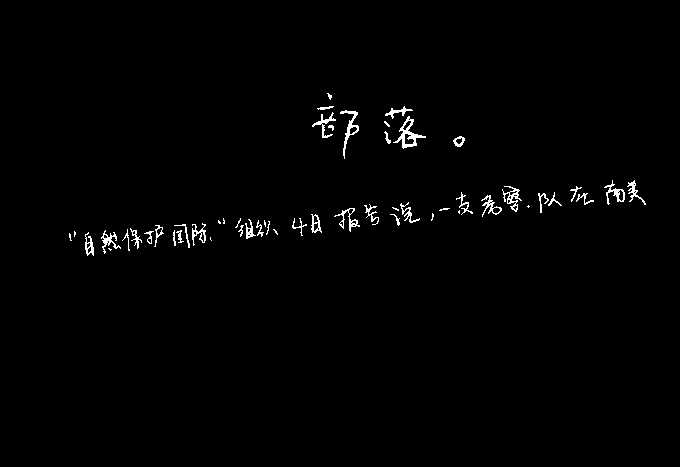 部落。
"自然保护国际"组织4日报告说,一支考察队在南美